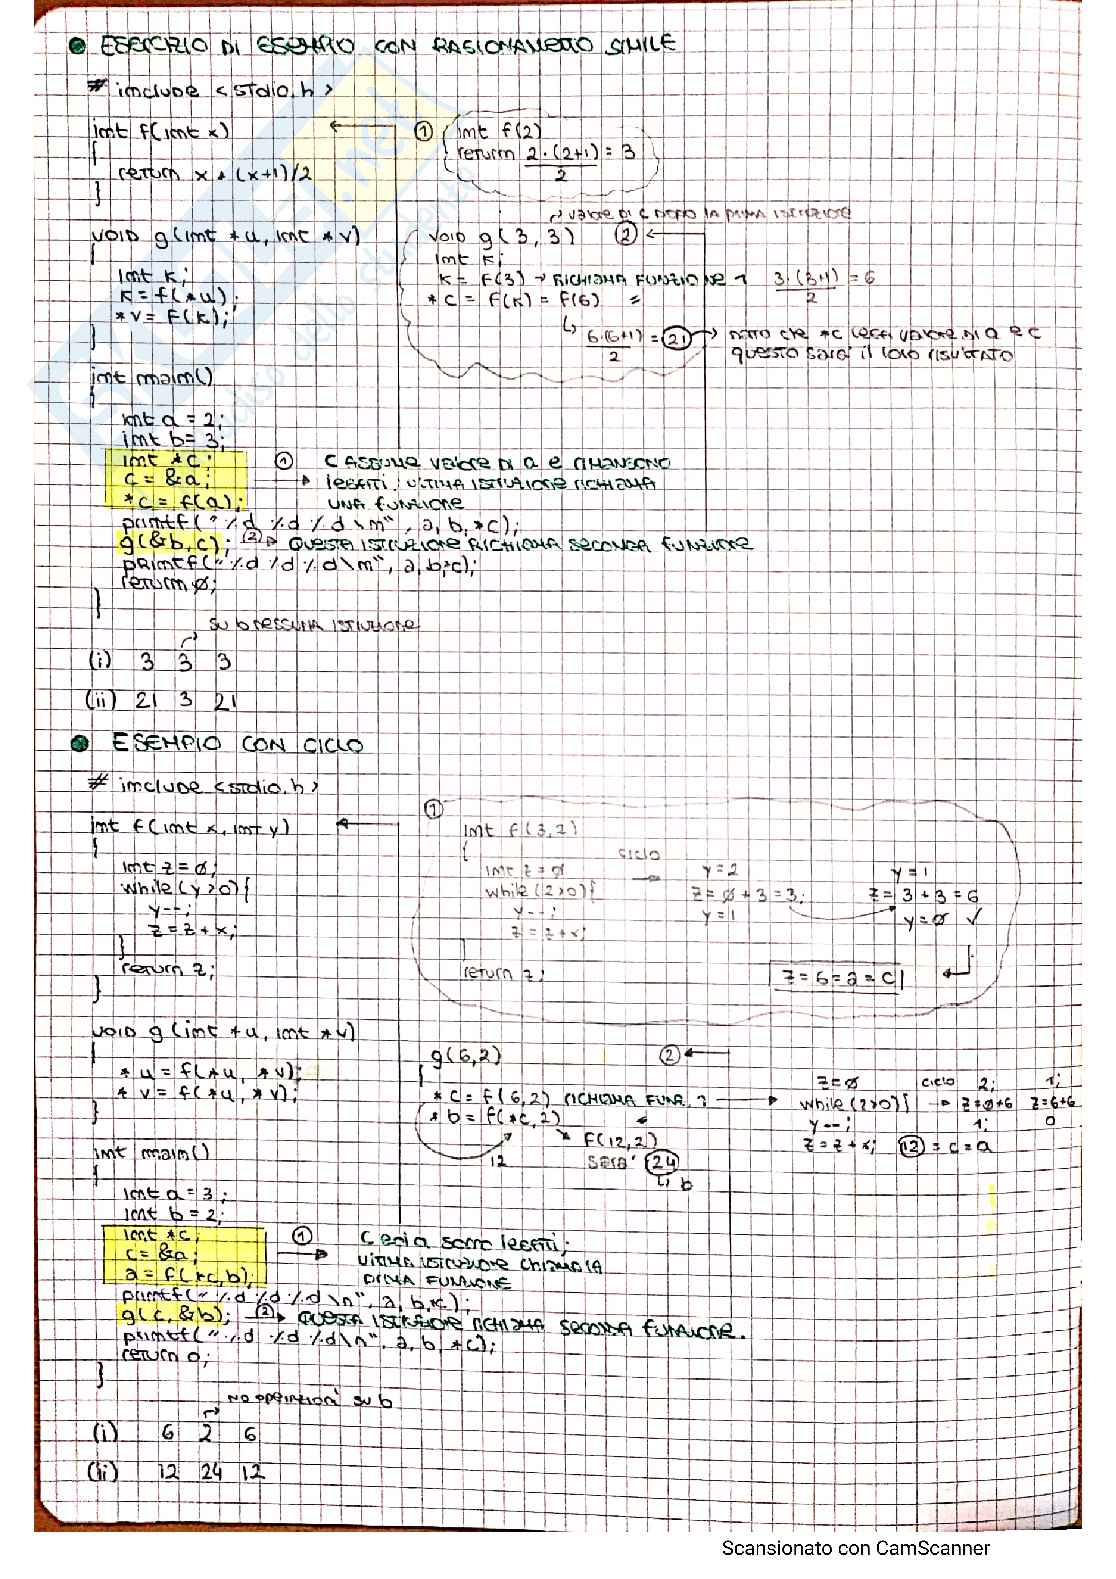 ESERCIZIO DI ESEMPIO CON RAGIONAMENTO SIMILE
# include <stdio.h>
int f(int x)
{
return x * (x+1)/2
}
① int f(2)
return 2·(2+1) = 3
2
void g(int *u, int *v)
{
int k;
k = f(*u);
*v = f(k);
}
→ valore di c dopo la prima istruzione
void g(3, 3) ②
int k;
k = f(3) → RICHIAMA FUNZIONE 1 3·(3+1) = 6
2
*c = f(k) = f(6) =
↳ 6·(6+1) = 21 → DATO CHE *C LEGA VALORE DI a e c
2
QUESTO SARÀ IL LORO RISULTATO
int main()
{
int a = 2;
int b = 3;
int *c;
c = &a;
*c = f(a);
① C ASSUME VALORE DI a E RIMANGONO
LEGATI; ULTIMA ISTRUZIONE RICHIAMA
UNA FUNZIONE
printf("%d %d %d\n", a, b, *c);
g(&b, c); ② → QUESTA ISTRUZIONE RICHIAMA SECONDA FUNZIONE
printf("%d %d %d\n", a, b, *c);
return 0;
}
SU b NESSUNA ISTRUZIONE
(i) 3 3 3
(ii) 21 3 21
ESEMPIO CON CICLO
# include <stdio.h>
int f(int x, int y)
{
int z = 0;
while(y>0){
y--;
z = z + x;
}
return z;
}
①
int f(3,2)
{
int z = 0
while(2>0){
y--;
z = z+x;
}
return z;
ciclo →
y = 2
z = 0 + 3 = 3;
y = 1
y = 1
z = 3 + 3 = 6
y = 0 ✓
z = 6 = a = c
void g(int *u, int *v)
{
*u = f(*u, *v);
*v = f(*u, *v);
}
g(6,2) ②
{
*c = f(6,2) RICHIAMA FUNZ. 1
*b = f(*c, 2)
12
f(12,2)
SARA' 24
↳ b
z = 0 ciclo 2; 1;
while(2>0){ → z=0+6 z=6+6
y--; 1; 0
z = z + x; 12 = c = a
int main()
{
int a = 3;
int b = 2;
int *c;
c = &a;
a = f(*c, b);
① C ed a sono legati;
ULTIMA ISTRUZIONE CHIAMA LA
PRIMA FUNZIONE
printf("%d %d %d\n", a, b, *c);
g(c, &b); ② → QUESTA ISTRUZIONE RICHIAMA SECONDA FUNZIONE.
printf("%d %d %d\n", a, b, *c);
return 0;
}
NO OPERAZIONI SU b
(i) 6 2 6
(ii) 12 24 12
Scansionato con CamScanner